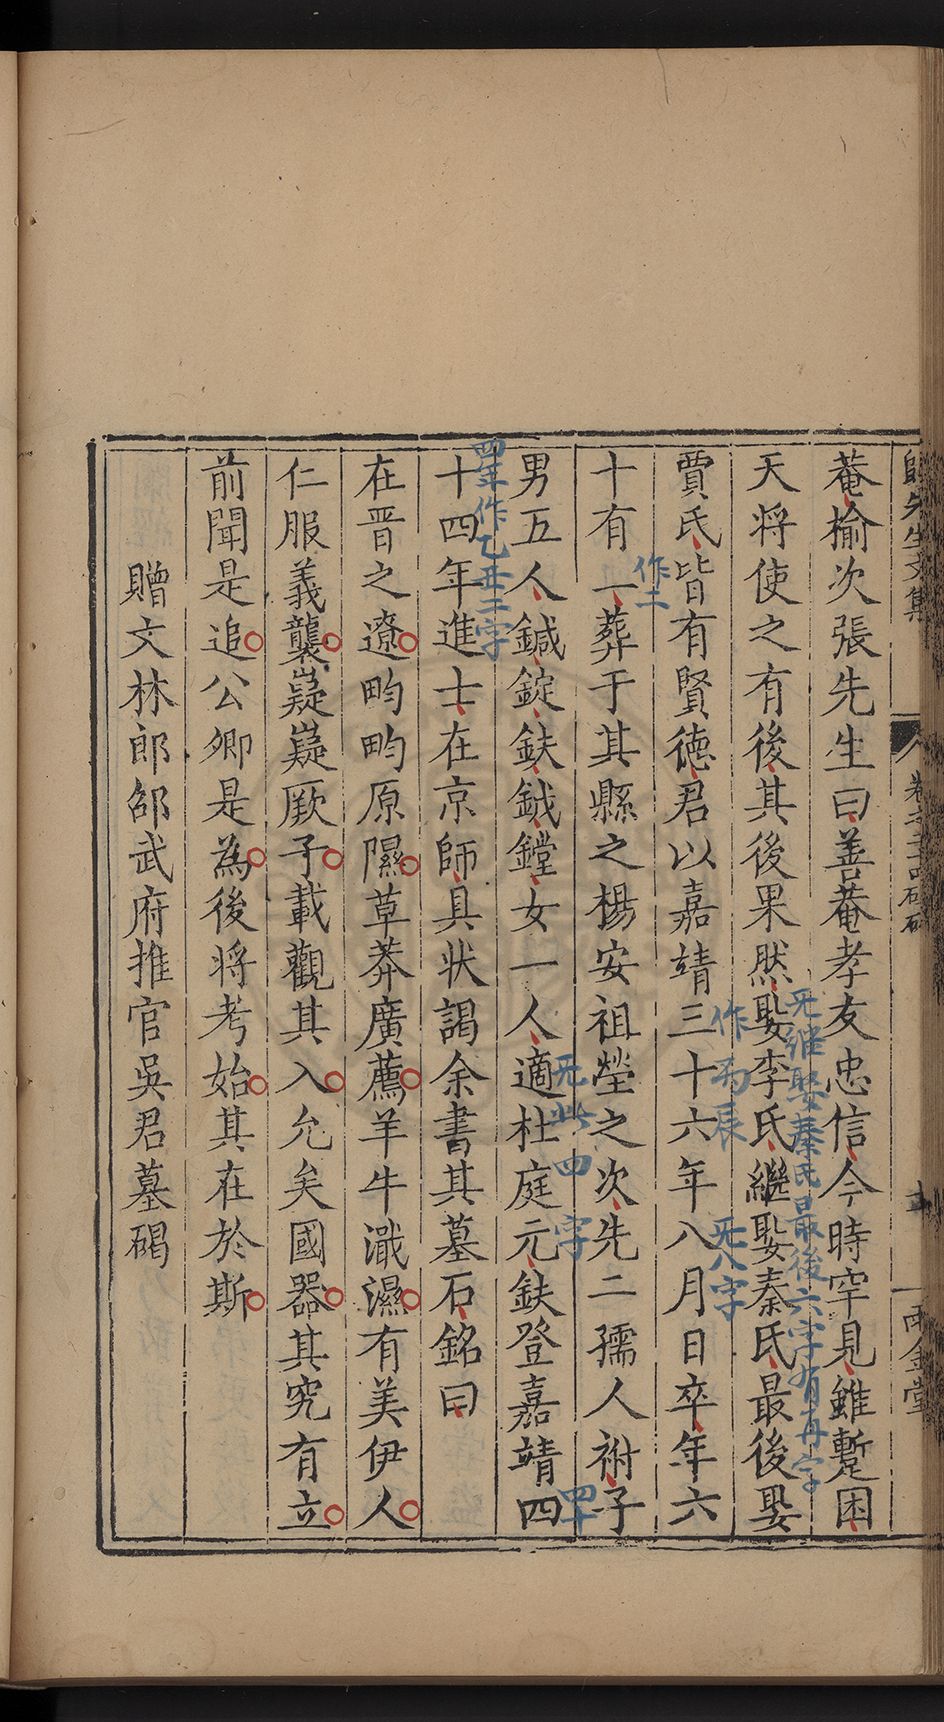 先生文集
卷之二
雨金堂
菴榆次張先生曰善菴孝友忠信今時罕見雖蹔困
天将使之有後其後果然娶李氏繼娶秦氏最後娶
无继娶秦氏最後六字有再字
賈氏皆有賢德君以嘉靖三十六年八月日卒年六
作丙辰
无八字
十有一葬于其縣之楊安祖塋之次先二孺人祔子
作二
男五人鍼錠鈇鉞鏜女一人適杜庭元鈇登嘉靖四
无此四字
四十
十四年進士在京師具状謁余書其墓石銘曰
四年作乙丑二字
在晋之遼畇畇原隰草莽廣薦羊牛濈濕有美伊人
仁服義襲嶷嶷厥子載觀其入允矣國器其究有立
前聞是追公卿是為後将考始其在於斯
贈文林郎邵武府推官吳君墓碣